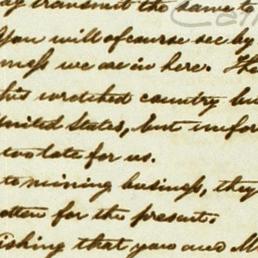 transmit the same to
You will of course see by
mess we are in here. The
his wretched country bu
United States, but unfor
too late for us.
to mining business, they
otten for the present.
ishing that you and M